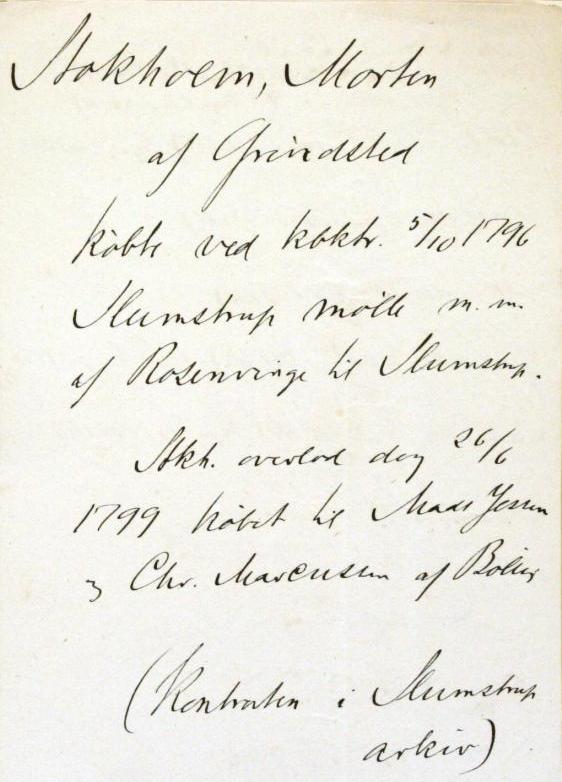 Stokholm, Morten
af Grindsted
købte ved kbktr. 5/10 1796
Slumstrup mølle m. m.
af Rosenvinge til Slumstrup.
Stkh. overlod dog 26/6
1799 købet til Mads Jessen
og Chr. Marcussen af
(Kontrakten i Slumstrup
arkiv)